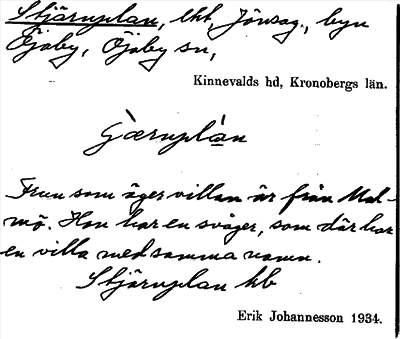 Stjärnplan, lht, Jönsag., byn
Öjaby, Öjaby sn,
Kinnevalds hd, Kronobergs län.
Frun som äger villan är från Mal-
mö. Hon har en svåger, som där har
en villa med samma namn.
Stjärnplan hb
Erik Johannesson 1934.